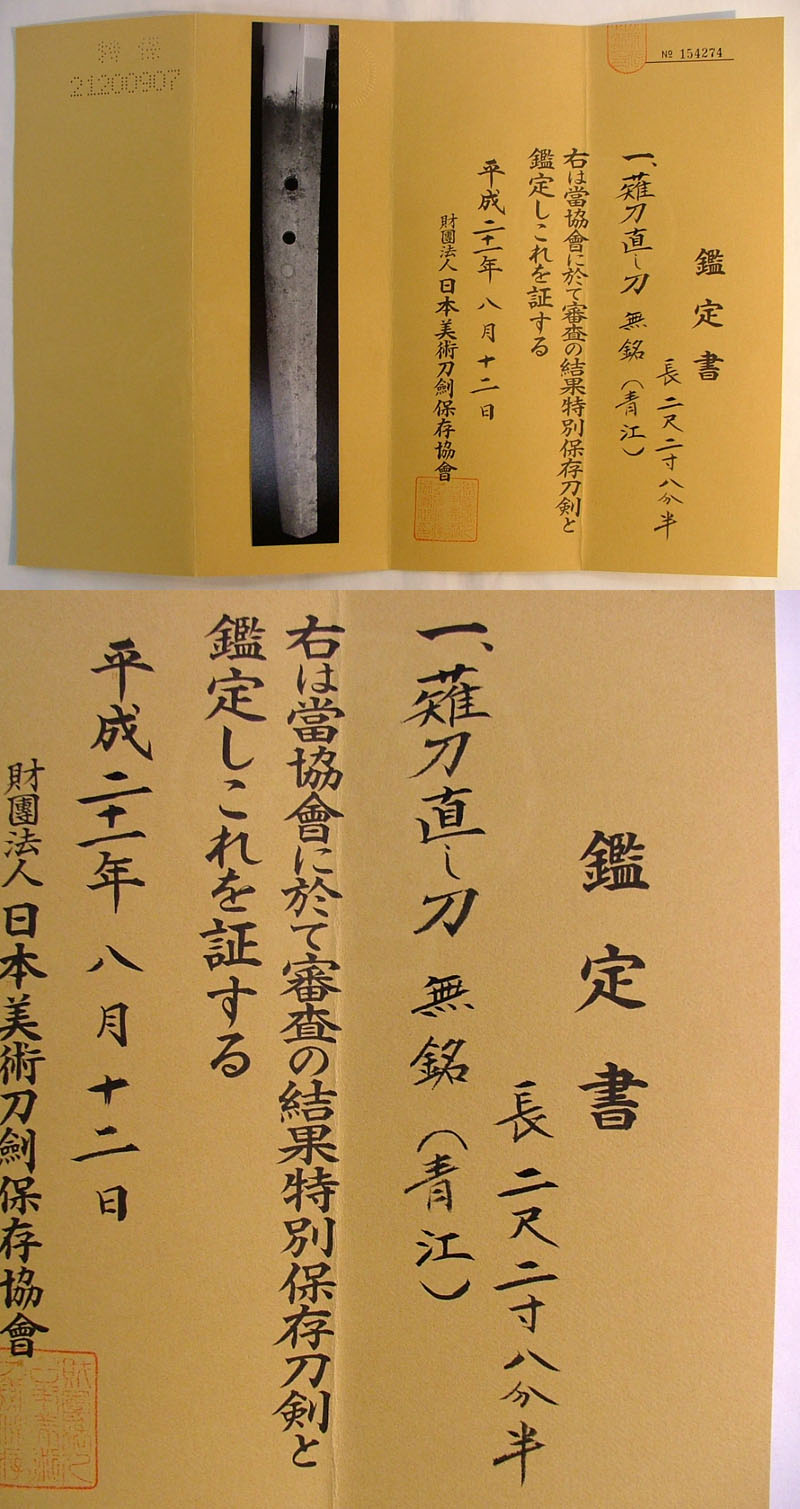 鑑定書
長 二尺二寸八分半
一、薙刀直し刀 無銘（青江）
右は當協會に於て審査の結果特別保存刀剣と
鑑定しこれを証する
平成二十一年八月十二日
財團法人日本美術刀劍保存協會
№ 154274
特保
21200907
鑑定書
長 二尺二寸八分半
一、薙刀直し刀 無銘（青江）
右は當協會に於て審査の結果特別保存刀剣と
鑑定しこれを証する
平成二十一年八月十二日
財團法人日本美術刀劍保存協會